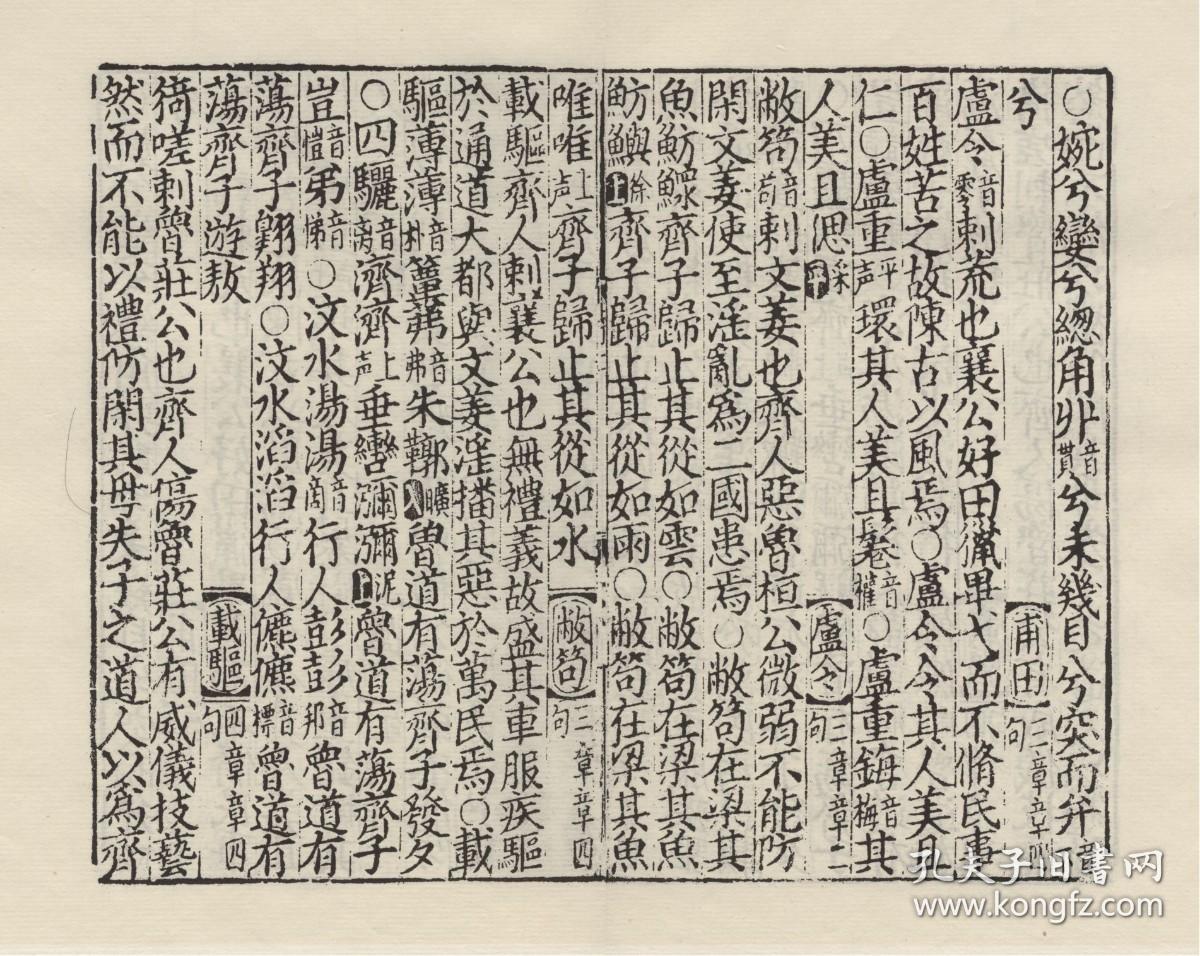 ○婉兮孌兮緫角丱音貫兮未幾見兮突而弁
兮 甫田三章章四句
盧令音零刺荒也襄公好田獵畢弋而不脩民事
百姓苦之故陳古以風焉○盧令令其人美且
仁○盧重平声環其人美且鬈音權○盧重鋂音梅其
人美且偲采平 盧令三章章二句
敝笱音苟刺文姜也齊人惡魯桓公微弱不能防
閑文姜使至淫亂為二國患焉○敝笱在梁其
魚魴鰥齊子歸止其從如雲○敝笱在梁其魚
魴鱮徐上齊子歸止其從如雨○敝笱在梁其魚
唯唯上声齊子歸止其從如水 敝笱三章章四句
載驅齊人刺襄公也無禮義故盛其車服疾驅
於通道大都與文姜淫播其惡於萬民焉○載
驅薄薄音朴簟茀音弗朱鞹曠入魯道有蕩齊子發夕
○四驪音离濟濟上声垂轡瀰瀰泥上魯道有蕩齊子
豈音愷弟音悌○汶水湯湯音商行人彭彭音邦魯道有
蕩齊子翺翔○汶水滔滔行人儦儦音標魯道有
蕩齊子遊敖 載驅四章章四句
猗嗟刺魯莊公也齊人傷魯莊公有威儀技藝
然而不能以禮防閑其母失子之道人以為齊
孔夫子旧书网
www.kongfz.com